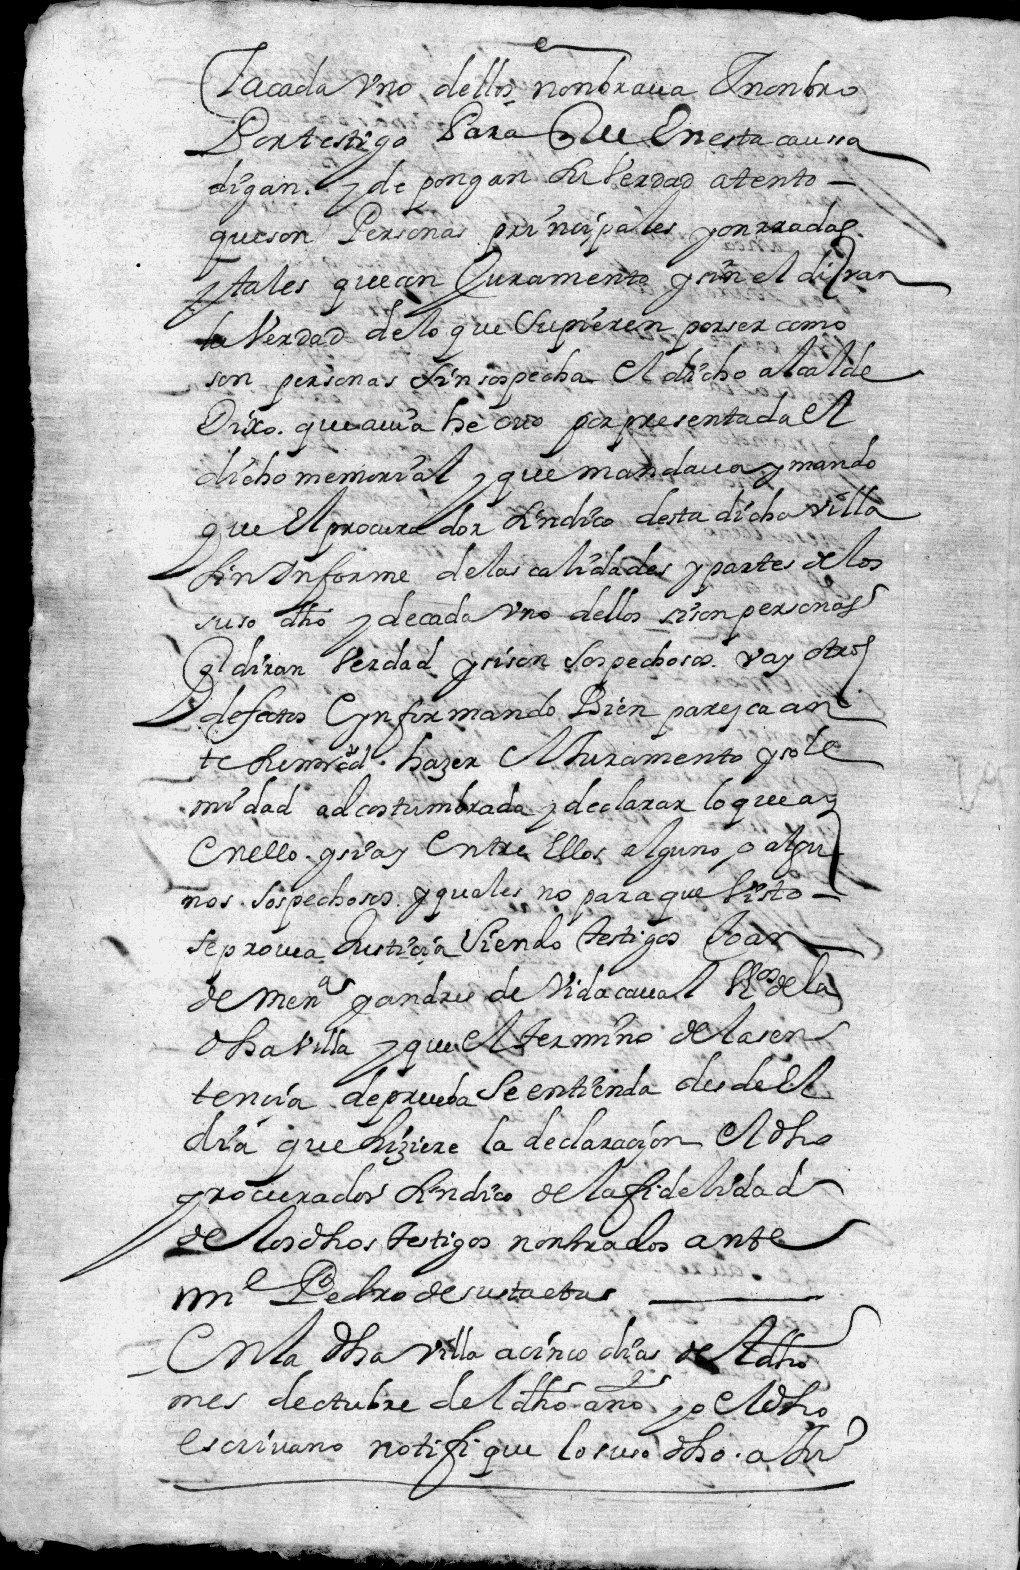 Y a cada vno dellos nonbraua Y nonbro
Por testigo Para Que En esta caussa
digan. y depongan La Verdad atento
que son Personas prinçipales y onrradas
y tales que con Juramento y sin el diran
la Verdad de lo que Supieren por ser como
son personas sin sospecha El dicho alcalde
Dixo. que auia he ouo por presentada El
dicho memorial y que mandaua y mando
que El procurador Sindico desta dicha villa
Sin Informe de las calidades y partes de los
suso dho y de cada vno dellos si son personas
q̃ diran Verdad y si son Sospechosos. v ay otros
defectos Y ynformando Bien paresca an
te Su mrd. hazer El Juramento y sole
nidad acostumbrada y declarar lo que ay
En ello. y si ay Entre Ellos alguno o algu
nos. Sospechosos. y quales no para que Visto
se prouea Justiçia Siendo testigos Joan
de Menª y andres de Vidacaual Vºs de la
dha Villa y que El termino de la sen
tençia de prueba Se entienda desde El
dia que hiziere la declaraçion El dho
procurador Sindico de la fidelidad
de los dhos testigos nonbrados ante
mi Pedro de sustaetas
En la dha villa a cinco dias del dho
mes de otubre del dho año yo El dho
escriuano notifique lo suso dho. a Ju